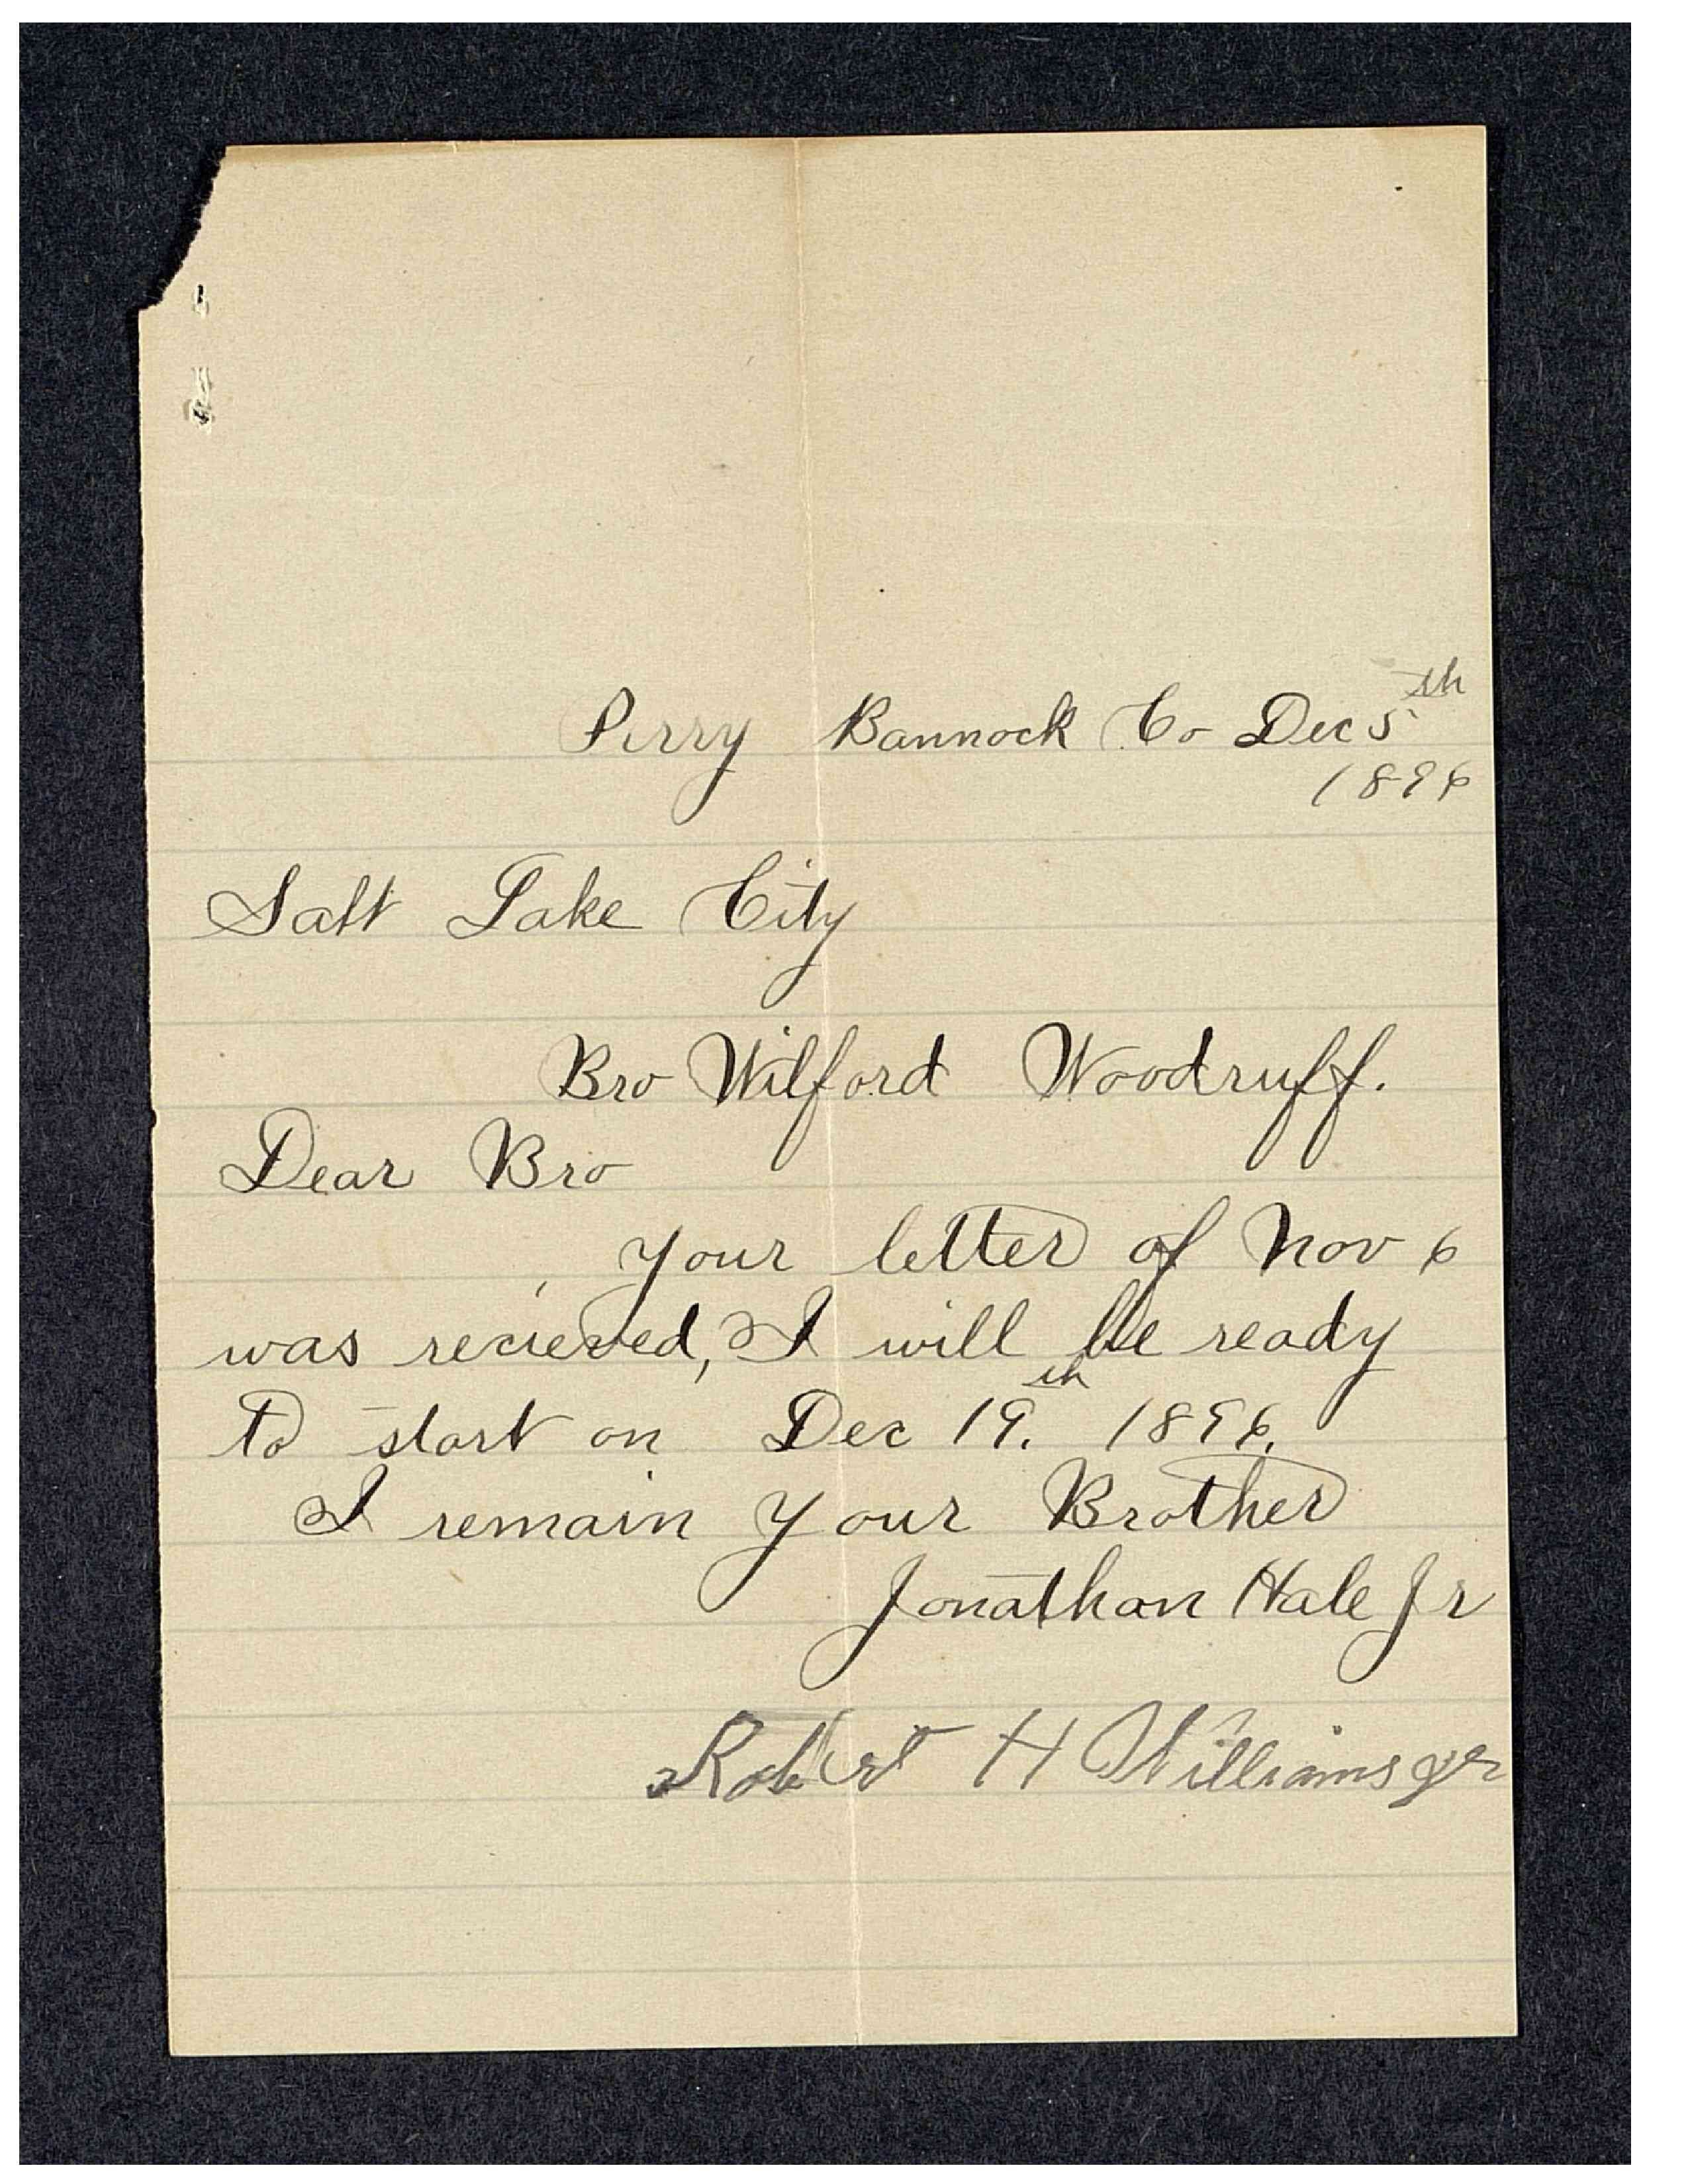 Perry Bannock Co Dec 5th
1896
Salt Lake City
Bro Wilford Woodruff.
Dear Bro
your letter of Nov 6
was recieved, I will be ready
to start on Dec 19.th 1896.
I remain your Brother
Jonathan Hale Jr
Robert H Williams Jr